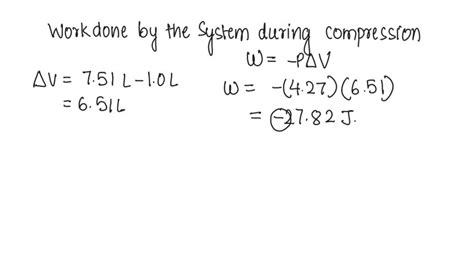 Workdone by the System during compression
W = -PΔV
ΔV = 7.51 L - 1.0 L
= 6.51 L
W = -(4.27)(6.51)
= -27.82 J.